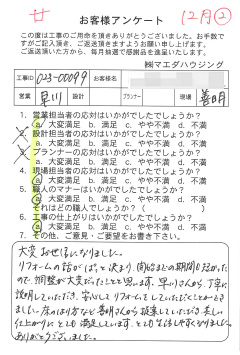 サ
12月②
お客様アンケート
この度は工事のご用命を頂きありがとうございました。お手数で
すがご記入頂き、ご返送頂きますようお願い申し上げます。
ご返送頂いた方から、毎月抽選で感謝品を進呈いたします。
㈱マエダハウジング
工事ID 023-00099 お客様名
営業 早川 設計 プランナー 現場 善明
1. 営業担当者の応対はいかがでしたでしょうか?
a. 大満足 b. 満足 c. やや不満 d. 不満
2. 設計担当者の応対はいかがでしたでしょうか?
a. 大満足 b. 満足 c. やや不満 d. 不満
3. プランナーの応対はいかがでしたでしょうか?
a. 大満足 b. 満足 c. やや不満 d. 不満
4. 現場担当者の応対はいかがでしたでしょうか?
a. 大満足 b. 満足 c. やや不満 d. 不満
5. 職人のマナーはいかがでしたでしょうか?
a. 大満足 b. 満足 c. やや不満 d. 不満
それはどの職人でしょうか? ( )
6. 工事の仕上がりはいかがでしたでしょうか?
a. 大満足 b. 満足 c. やや不満 d. 不満
7. その他、ご意見・ご要望をお書き下さい。
大変お世話になりました。
リフォームの話がぱっと決まり、開始までの期間も短かったの
で、調整が大変だったことと思います。早川さんから、丁寧に
説明していただき、安心してリフォームをしていただくことができ
ました。床のはり方など善明さんから提案していただき、美しい
仕上がりにとても満足しています。とても生活しやすくなりました。
ありがとうございました。